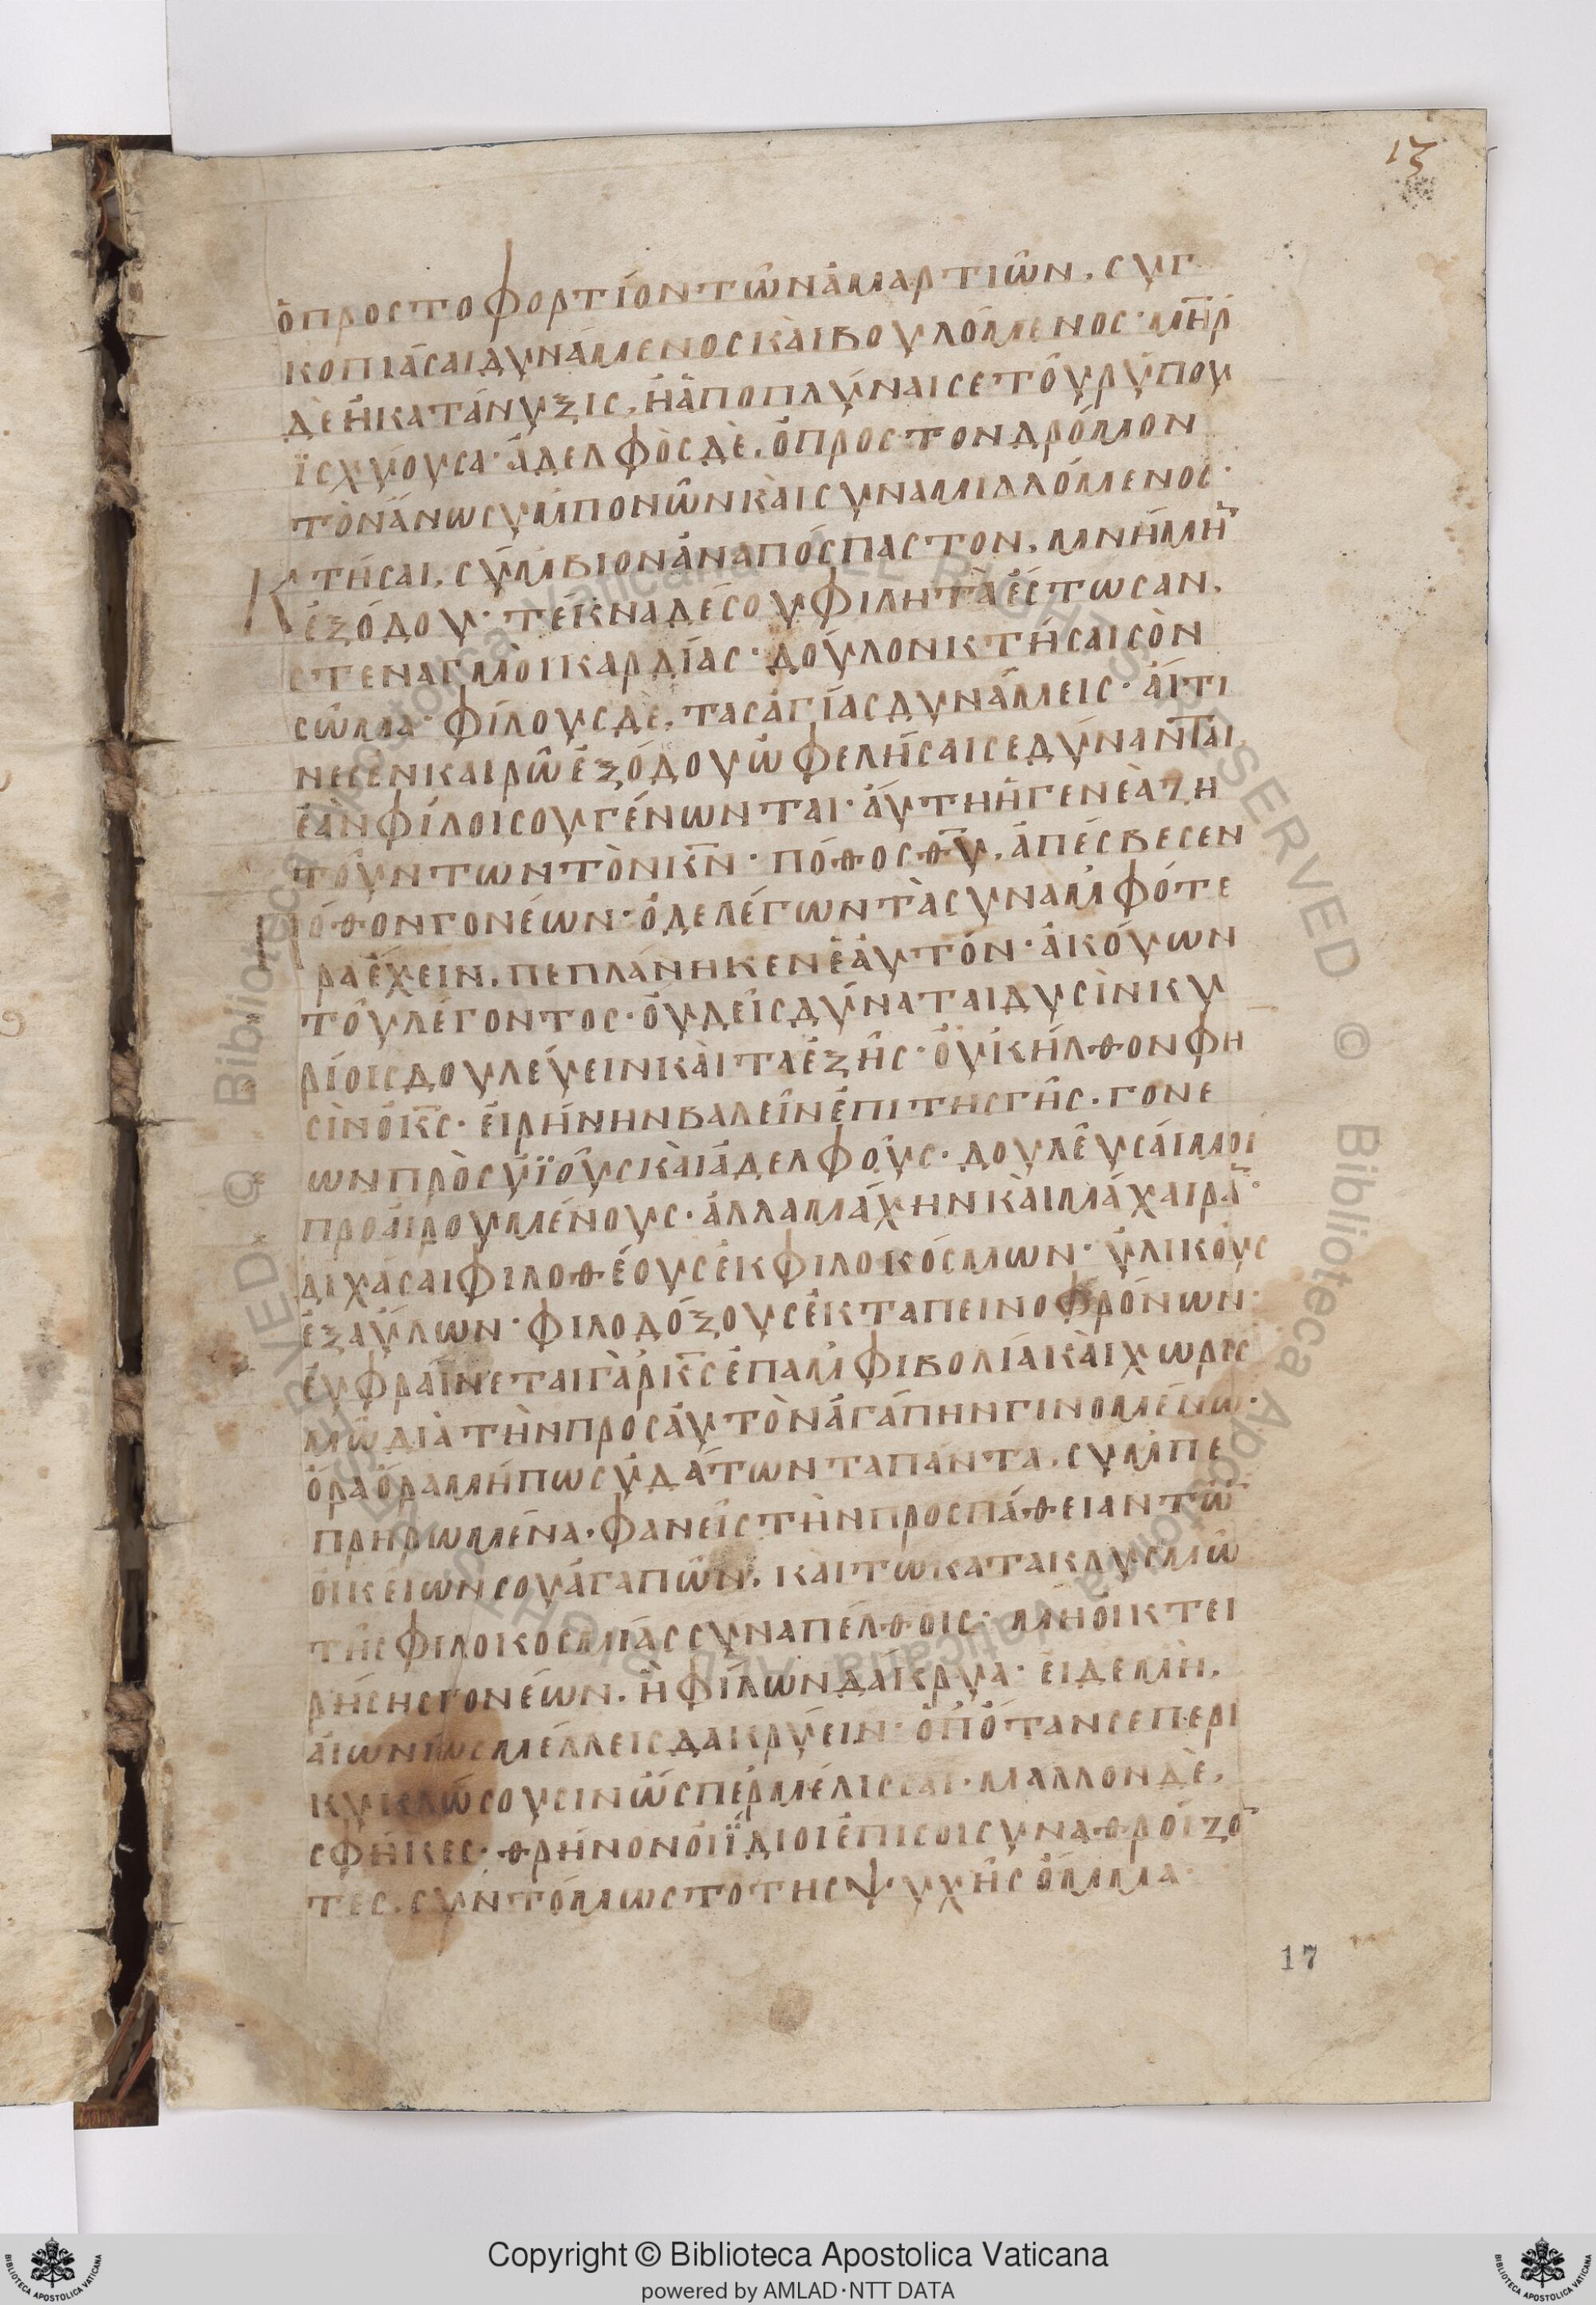 13
ὁ πρὸς τὸ φορτίον τῶν ἁμαρτιῶν, συγ
κοπιάσαι δυνάμενος καὶ βουλόμενος· μη̅ρ
δὲ ἡ κατάνυξις, ἡ ἀποπλύναι σε τοῦ ῥύπου
ἰσχύουσα· ἀδελφὸς δὲ, ὁ πρὸς τὸν δρόμον
τὸν ἄνω συμπονῶν καὶ συναμιλλόμενος·
Κτῆσαι, σύμβιον ἀναπόσπαστον, μνήμη̅
ἐξόδου· τέκνα δέ σου φιλητὰ ἔστωσαν,
στεναγμοὶ καρδίας· δοῦλον κτῆσαι σὸν
σῶμα· φίλους δὲ, τὰς ἁγίας δυνάμεις· αἵτι
νές ἐν καιρῷ ἐξόδου ὠφελῆσαί σε δύνανται
ἐὰν φίλοι σου γένωνται· αὕτη ἡ γενεὰ ζη
τούντων τὸν κ̅ν· πόθος θ̅υ, ἀπέσβεσεν
πόθον γονέων· ὁ δὲ λέγων τὰ συναμφότε
ρα ἔχειν, πεπλάνηκεν ἑαυτόν· ἀκούων
τοῦ λέγοντος· οὐδεὶς δύναται δυσὶν κυ
ρίοις δουλεύειν καὶ τὰ ἑξῆς· οὐκ ἦλθον φη
σὶν ὁ κ̅ς· εἰρήνην βαλεῖν ἐπὶ τῆς γῆς. γονε
ων πρὸς υἱοὺς καὶ ἀδελφοὺς· δουλεῦσαί μοι
προαιρουμένους· ἀλλὰ μάχην καὶ μάχαιρα̅·
διχάσαι φιλοθέους ἐκ φιλοκόσμων· ὑλικοὺς
ἐξ ἀΰλων· φιλοδόξους ἐκ ταπεινοφρόνων·
εὐφραίνεται γὰρ κ̅ς ἐπ' ἀμφιβολία καὶ χωρισ
μῶ διὰ τὴν πρὸς αὐτὸν ἀγάπην γινομένω·
ὅρα ὅρα μήπως ὑδάτων τὰ πάντα, συμπε
πληρωμένα· φανεῖς τὴν προσπάθειαν τῶ̅
οἰκείων σου ἀγαπῶν, καὶ τῶ κατακλυσμῶ
τῆς φιλοκοσμίας συναπέλθοις· μὴ οἰκτει
ρήσης γονέων, ἢ φίλων δάκρυα· εἰ δὲ μή,
αἰωνίως μέλλεις δακρύειν· ὁπόταν σε περι
κυκλώσουσιν ὥσπερ μέλισσαι· μᾶλλον δὲ,
σφῆκες· θρῆνον οἱ ἴδιοι ἐπὶ σοὶ συναθροίζο̅
τες, συντόμως τὸ τῆς ψυχῆς ὄμμα·
17
© Biblioteca Apostolica Vaticana ALL RIGHTS RESERVED © Biblioteca Apostolica Vaticana ALL RIGHTS RESERVED
Copyright © Biblioteca Apostolica Vaticana
powered by AMLAD·NTT DATA
BIBLIOTECA APOSTOLICA VATICANA
BIBLIOTECA APOSTOLICA VATICANA